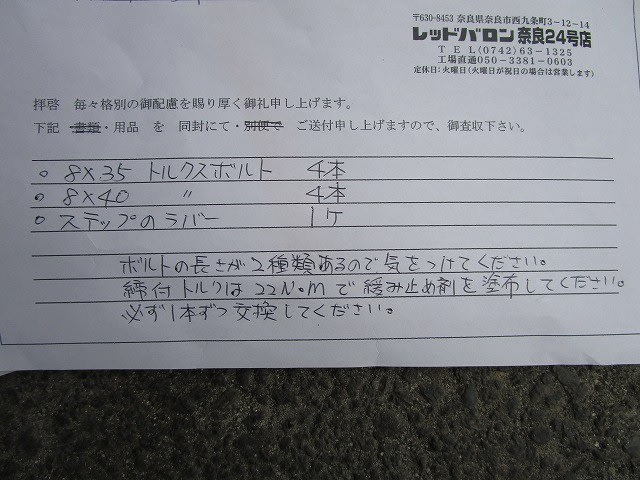 〒630-8453 奈良県奈良市西九条町3-12-14
レッドバロン 奈良24号店
TEL(0742)63-1325
工場直通050-3381-0603
定休日:火曜日(火曜日が祝日の場合は営業します)
拝啓 毎々格別の御配慮を賜り厚く御礼申し上げます。
下記 書類・用品 を 同封にて・別便で ご送付申し上げますので、御査収下さい。
○ 8×35 トルクスボルト 4本
○ 8×40 〃 4本
○ ステップのラバー 1ケ
ボルトの長さが2種類あるので気をつけてください。
締付トルクは22N・mで緩み止め剤を塗布してください。
必ず1本ずつ交換してください。